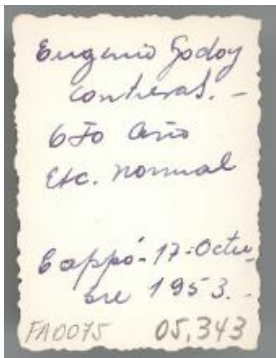 Eugenio Godoy
Contreras. -
6to Año
Esc. normal
Coppó - 17 - Octu-
bre 1953. -
FA0075 05,343